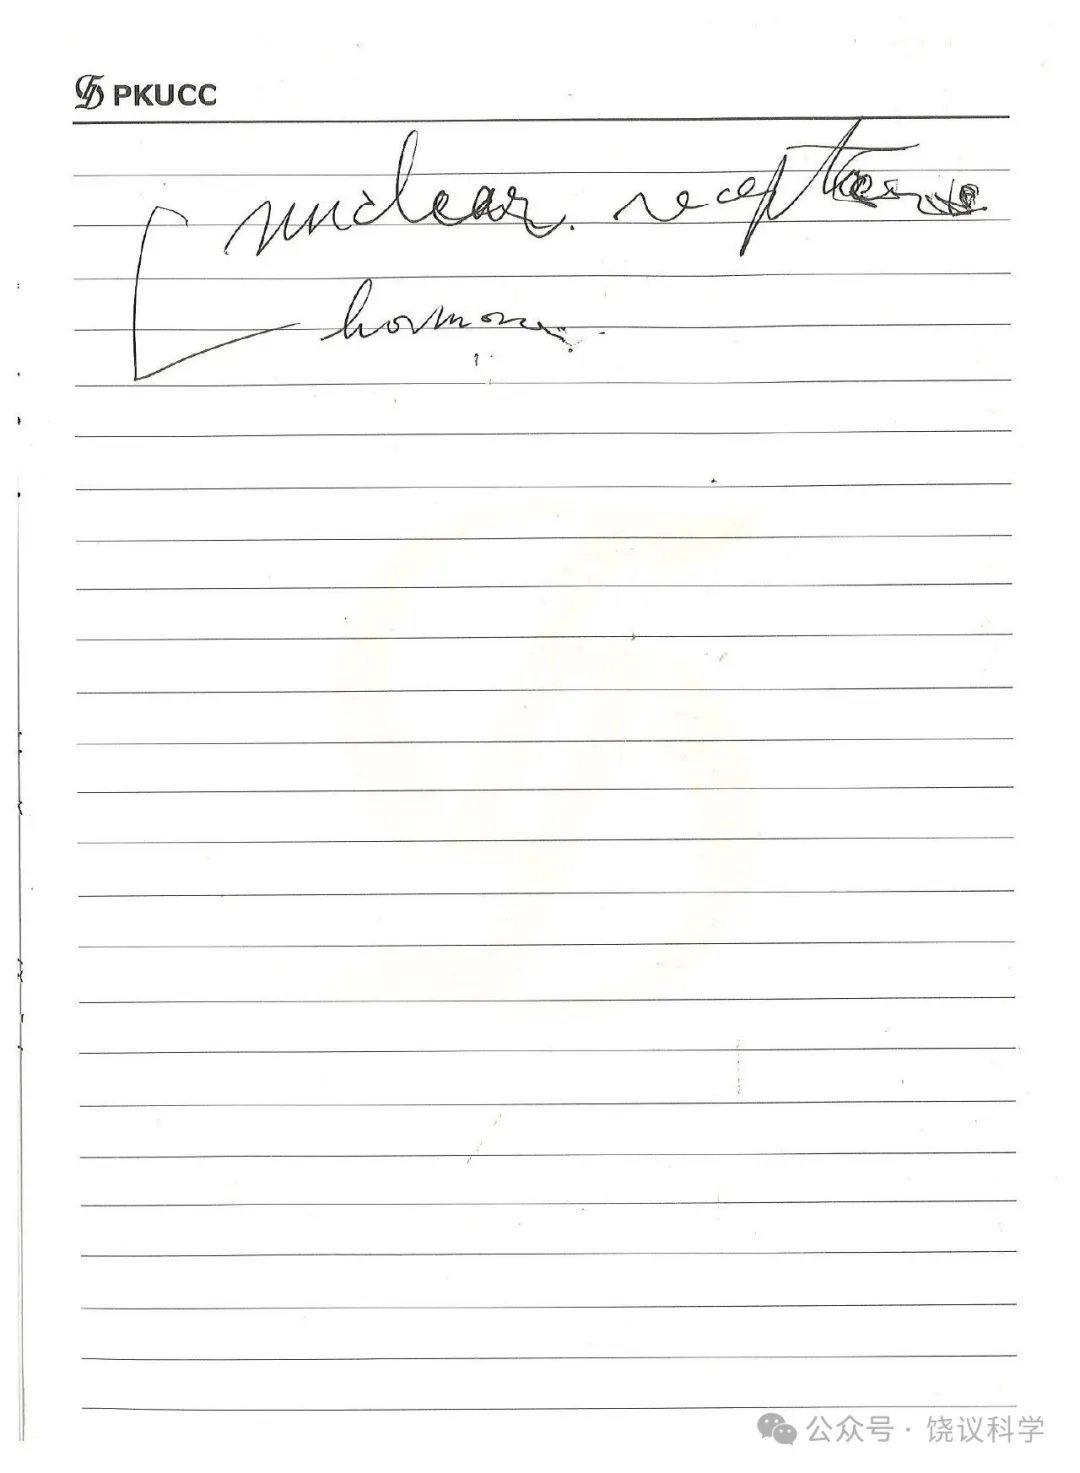 PKUCC
nuclear receptors
hormone
公众号 · 饶议科学